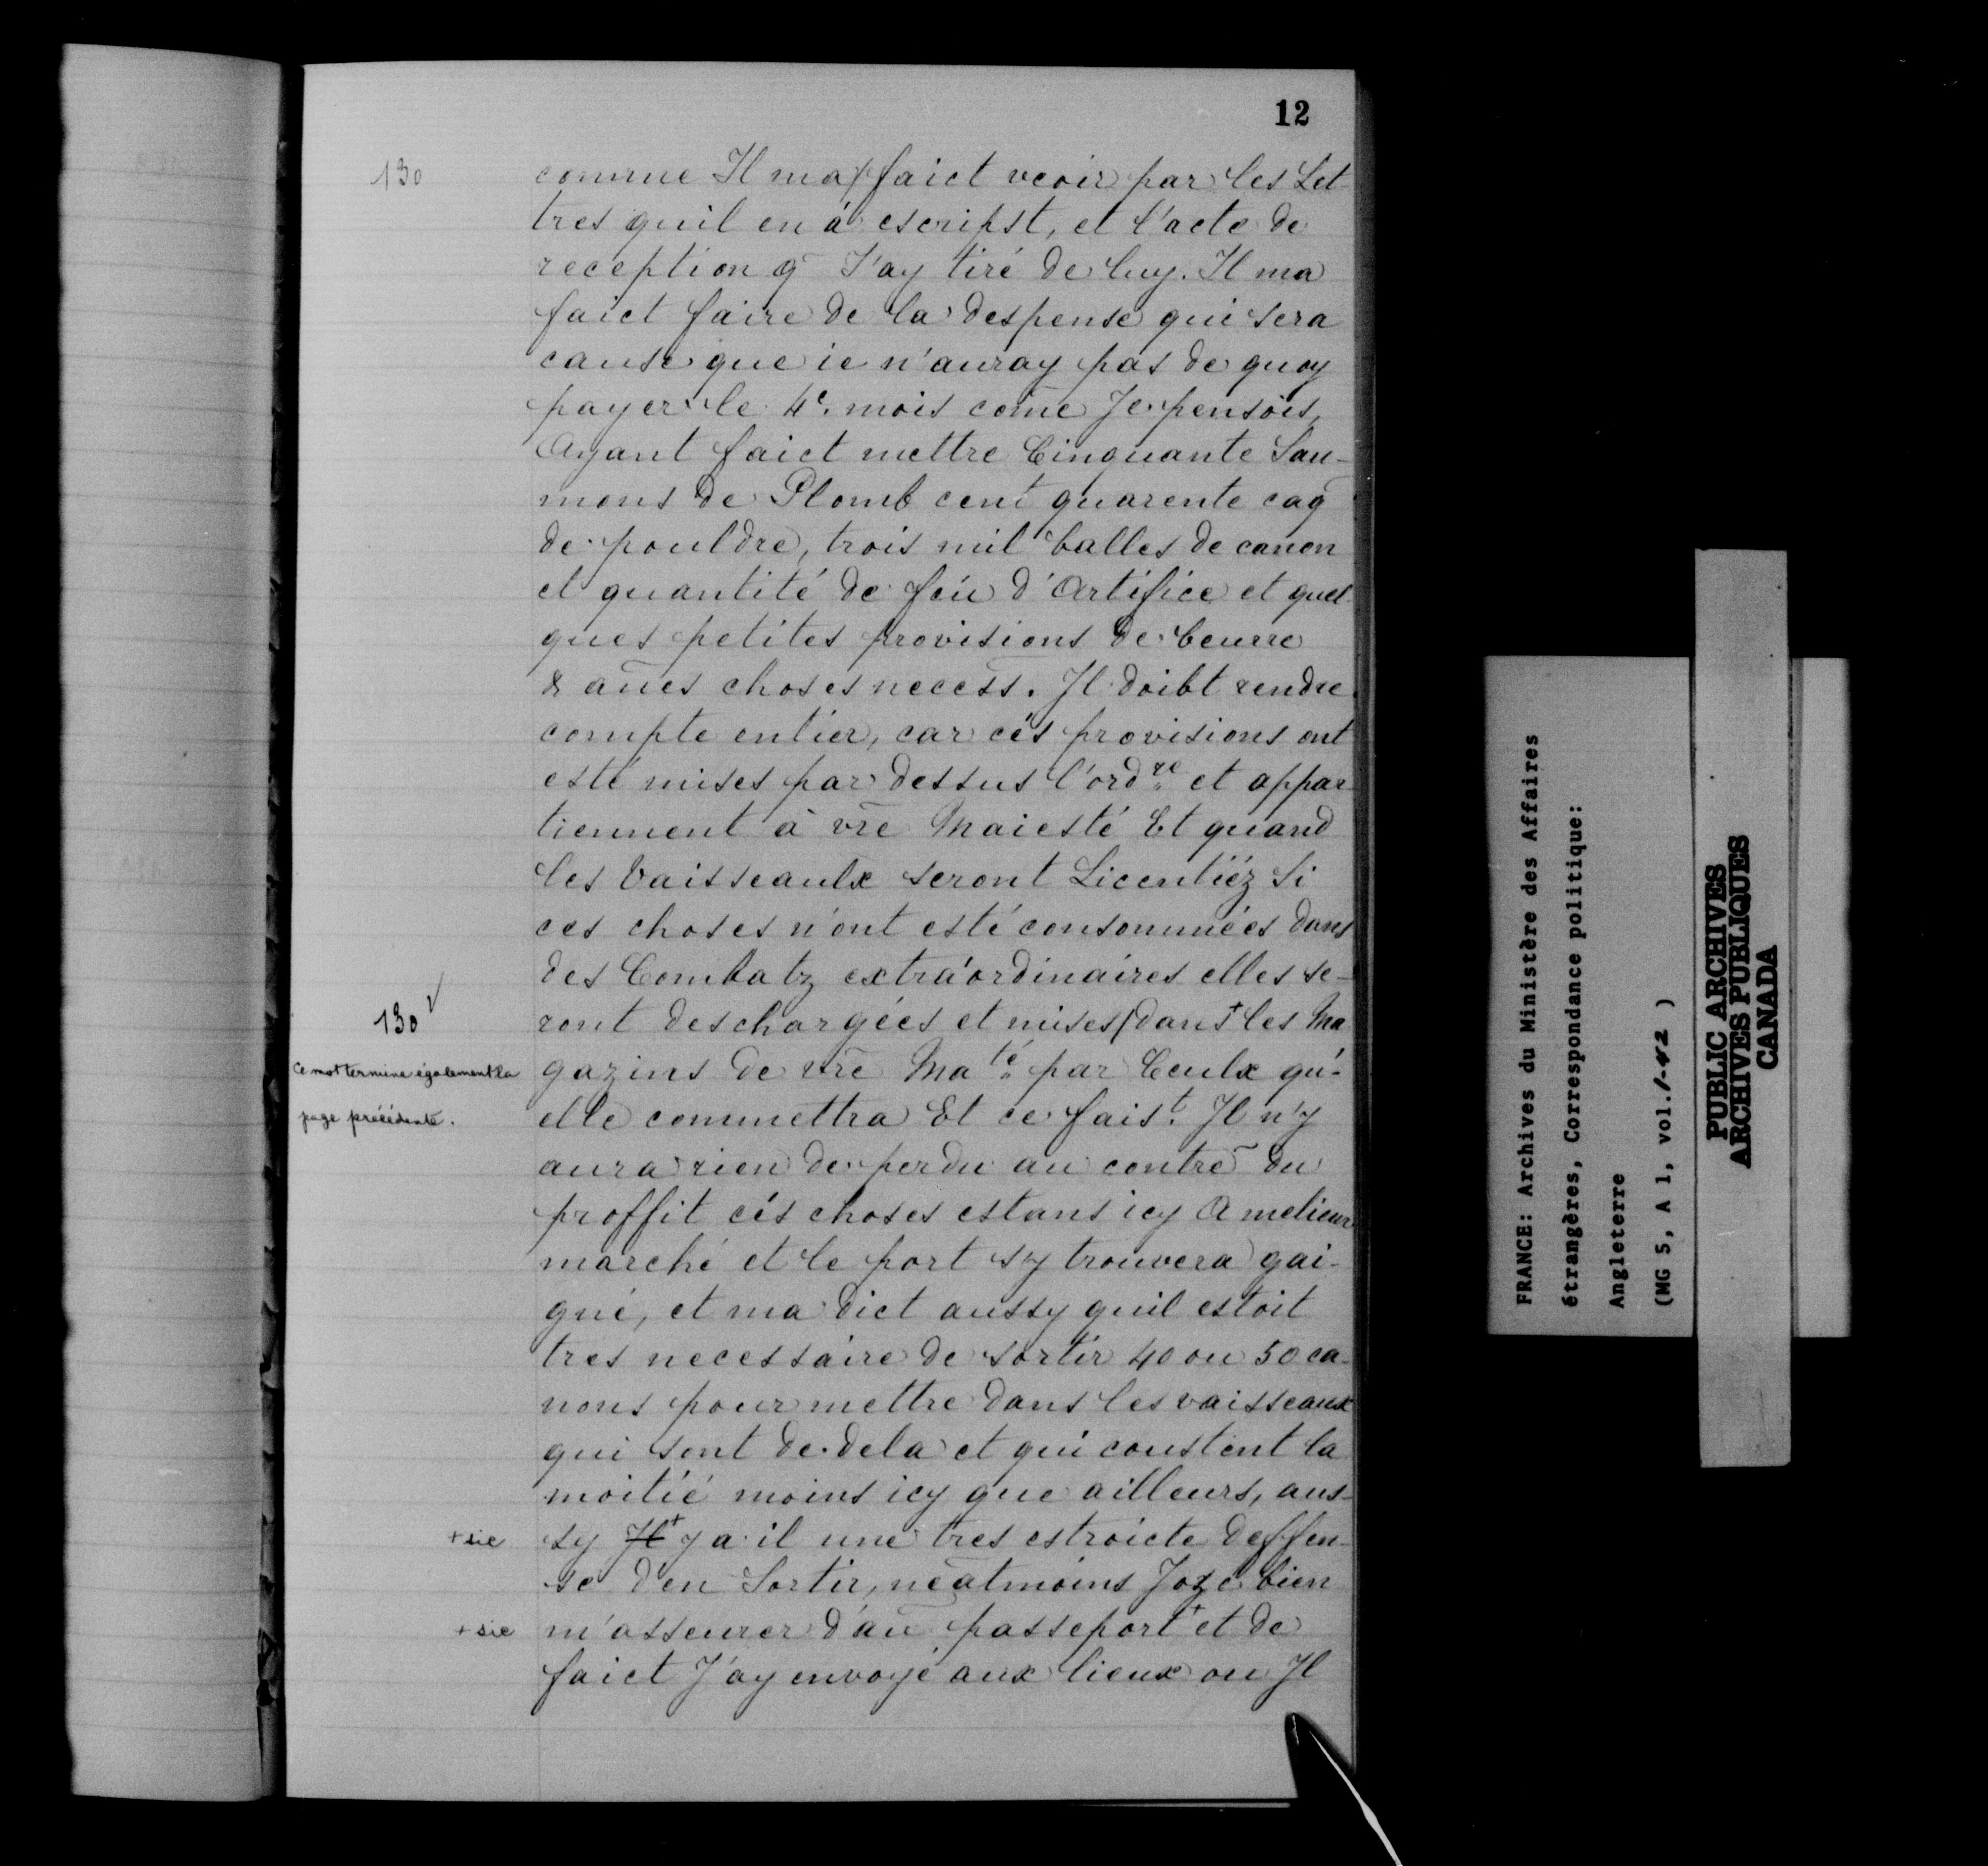 12
130
comme Il ma/faict veoir par les Let-
tres quil en á escripst, et l'acte de
reception q̃ J'ay tiré de luy. Il ma
faict faire de la despense qui sera
cause que ie n'auray pas de quoy
payer le 4e. mois cõme Je pensois,
Ayant faict mettre Cinquante Sau-
mons de Plomb cent quarente caq̃
de pouldre, trois mil balles de canon
et quantité de feu d'Artifice et quel-
ques petites provisions de beurre
& aũes choses necess̃. Il doibt rendre
compte entier, car cés provisions ont
esté mises par dessus l'ordre et appar-
tiennent à vr̃e Maiesté Et quand
les Vaisseaulx seront Licentiéz Si
ces choses n'ont esté consommées dans
des Combatz extra'ordinaires elles se-
130
ront deschargées et mises/dans+ les Ma
Ce mot termine également la
page précédente.
gazins de vr̃e Maté par Ceulx qu'-
elle commettra Et ce faist. Il n'y
aura rien de perdu au contrẽ du
proffit cés choses estans icy A melieur
marché et le port s'y trouvera gai-
gné, et ma dict aussy quil estoit
tres necessaire de sortir 40 ou 50 ca-
nons pour mettre dans les vaisseaux
qui sont de dela et qui coustent la
moitié moins icy que ailleurs, aus-
+ sic
sy Il+ y a il une tres estroicte deffen-
se d'en Sortir, neãtmoins Joze bien
+ sic
m'asseurer d'aũ passeport+ et de
faict J'ay envoyé aux lieux ou Il
FRANCE: Archives du Ministère des Affaires
étrangères, Correspondance politique:
Angleterre
(MG 5, A 1, vol. 1-42 )
PUBLIC ARCHIVES
ARCHIVES PUBLIQUES
CANADA